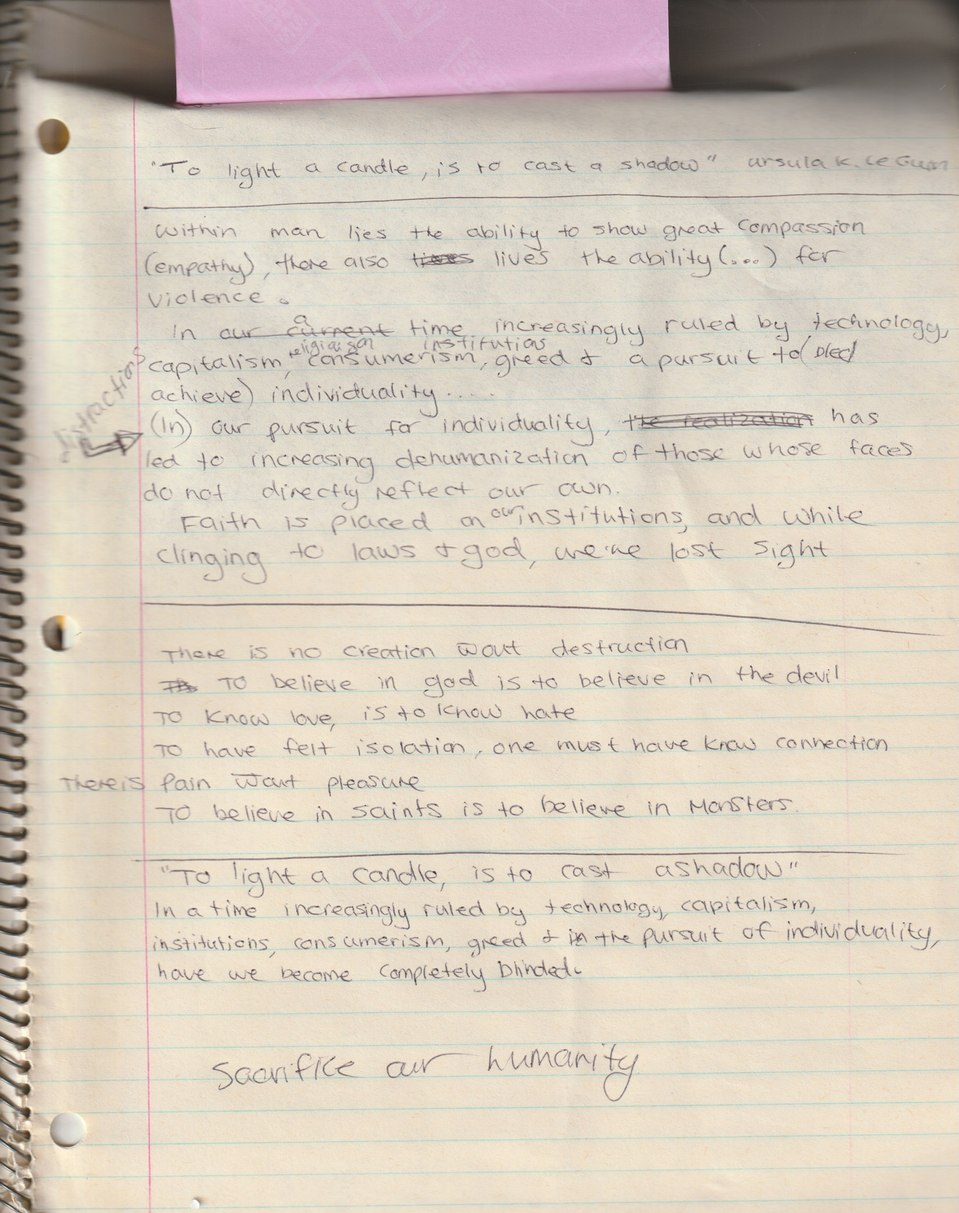 "To light a candle, is to cast a shadow" ursula k. Le Guin
Within man lies the ability to show great compassion
(empathy), there also lives the ability (...) for
violence.
In our a current time, increasingly ruled by technology,
religion institutions
capitalism, consumerism, greed & a pursuit to (pled
achieve) individuality.....
distractions
(In) our pursuit for individuality, the realization has
led to increasing dehumanization of those whose faces
do not directly reflect our own.
Faith is placed on our institutions, and while
clinging to laws & god, we've lost sight
There is no creation w̅out destruction
To believe in god is to believe in the devil
To know love, is to know hate
To have felt isolation, one must have know connection
There is pain w̅out pleasure
To believe in saints is to believe in Monsters.
"To light a candle, is to cast a shadow"
In a time increasingly ruled by technology, capitalism,
institutions, consumerism, greed & in the pursuit of individuality,
have we become completely blinded.
Sacrifice our humanity